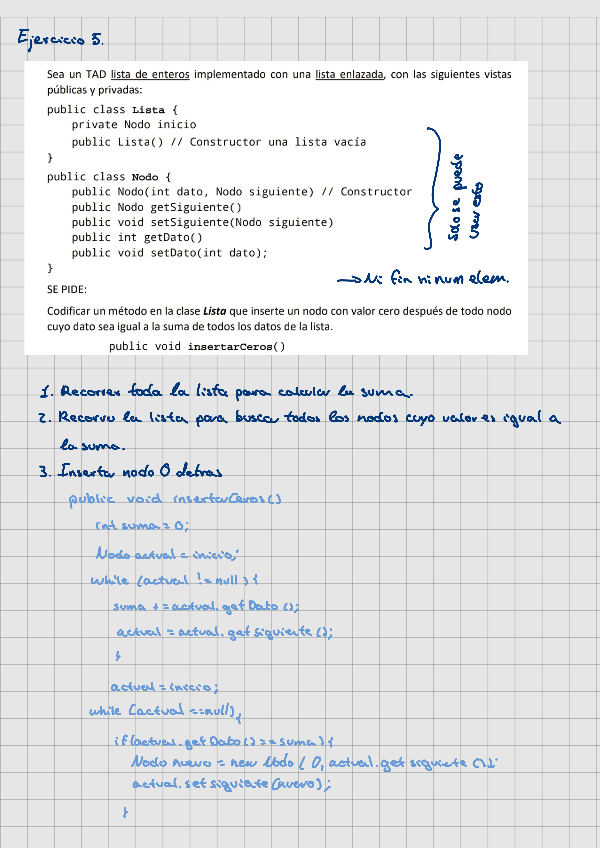 Ejercicio 5.
Sea un TAD lista de enteros implementado con una lista enlazada, con las siguientes vistas
públicas y privadas:
public class Lista {
private Nodo inicio
public Lista() // Constructor una lista vacía
}
public class Nodo {
public Nodo(int dato, Nodo siguiente) // Constructor
public Nodo getSiguiente()
public void setSiguiente(Nodo siguiente)
public int getDato()
public void setDato(int dato);
}
solo se puede
usar esto
→ Ni fin ni num elem.
SE PIDE:
Codificar un método en la clase Lista que inserte un nodo con valor cero después de todo nodo
cuyo dato sea igual a la suma de todos los datos de la lista.
public void insertarCeros()
1. Recorrer toda la lista para calcular la suma.
2. Recorro la lista para busca todos los nodos cuyo valor es igual a
la suma.
3. Inserta nodo 0 detras
public void insertarCeros()
int suma = 0;
Nodo actual = inicio;
while (actual != null) {
suma += actual.getDato();
actual = actual.getsiguiente();
}
actual = inicio;
while (actual ==null){
if(actual.getDato() == suma){
Nodo nuevo = new Nodo ( 0, actual.getsiguiente ());
actual.setsiguiente(nuevo);
}